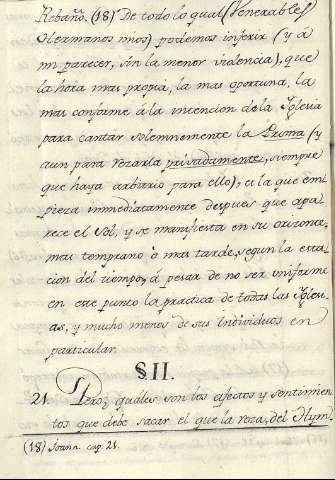 Rebaño. (18) De todo lo qual (Venerables
Hermanos mios) podemos inferir (y á
mi parecer, sin la menor violencia), que
la hora mas propia, la mas oportuna, la
mas conforme á la intencion dela Iglesia
para cantar solemnemente la Prima (y
aun para rezarla privadamente, siempre
que haya arbitrio para ello), es la que em-
pieza immediatamente despues que apa-
rece el Sol, y se manifiesta en su orizonte,
mas temprano ò mas tarde, segun la esta-
cion del tiempo, á pesar de no ser uniforme
en este punto la practica de todas las Igles-
as, y mucho menos de sus Individuos en
particular.
§. II.
21. Pero, quales son los afectos y sentimien-
tos que debe sacar el que la reza, del Hym-
(18) Joann. cap. 21.